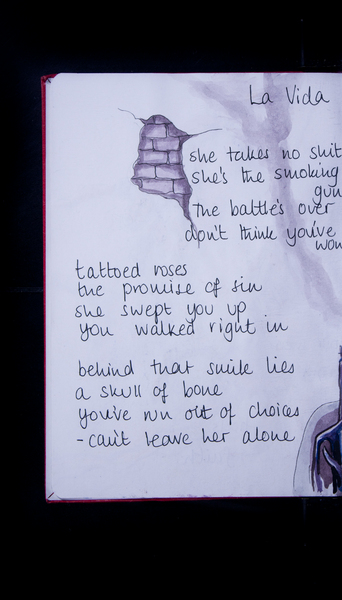 La Vida
she takes no shit
she's the smoking
gun
The battle's over
don't think you've
won
tattoed roses
the promise of sin
she swept you up
you walked right in
behind that smile lies
a skull of bone
you've run out of choices
- can't leave her alone